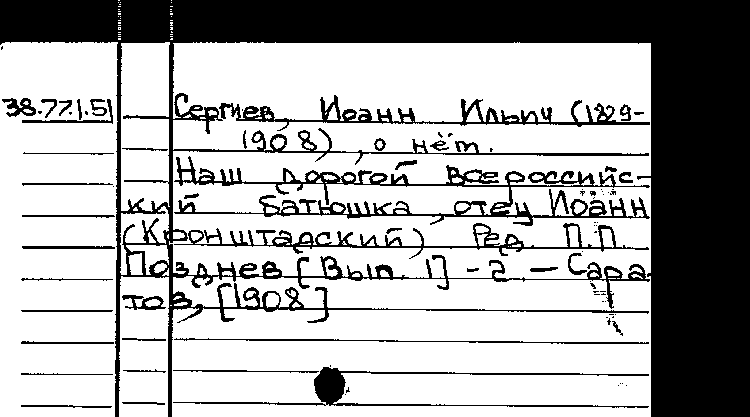 38.77.1.51 Сергиев, Иоанн Ильич (1829-
1908), о нём.
Наш дорогой всероссийс-
кий батюшка, отец Иоанн
(Кронштадский) Ред. П.П.
Позднев [Вып. 1] - 2 - Сара-
тов, [1908]